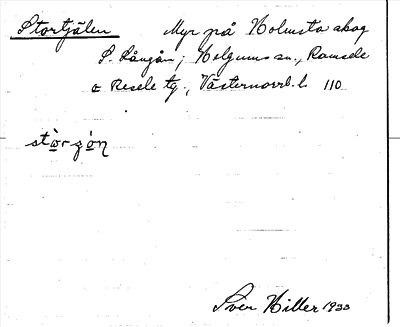 Stortjälen Myr på Holmsta skog
S. Långån, Helgums sn., Ramsele
o Resele tg., Västernorrl. l. 110
stòrʒòn
Sven Hiller 1933